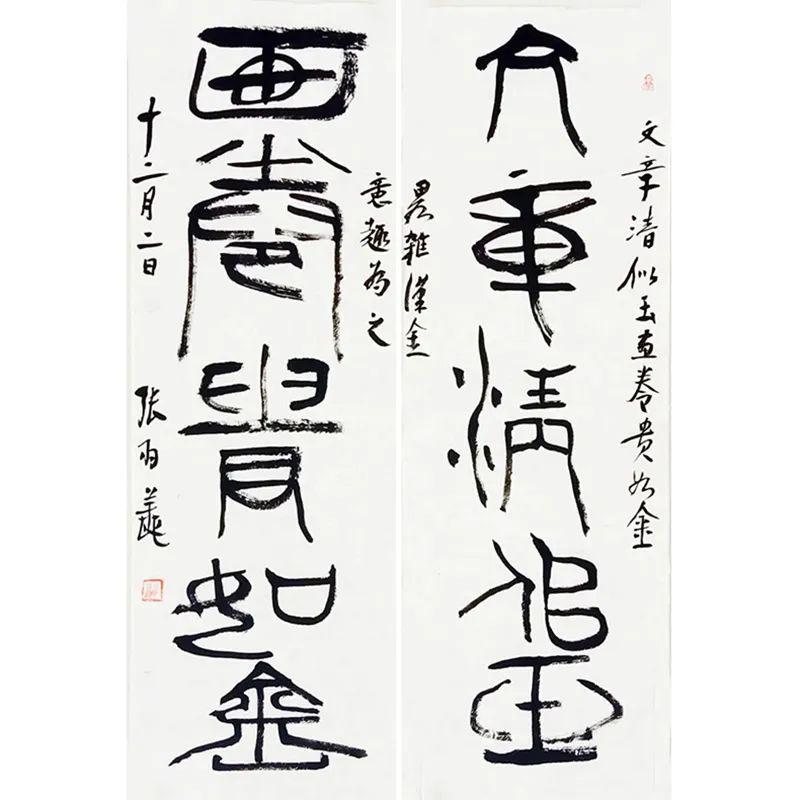 文章清似玉画卷贵如金
文章清似玉
畧雜漢金
意趣為之
画卷貴如金
十二月二日 张雨